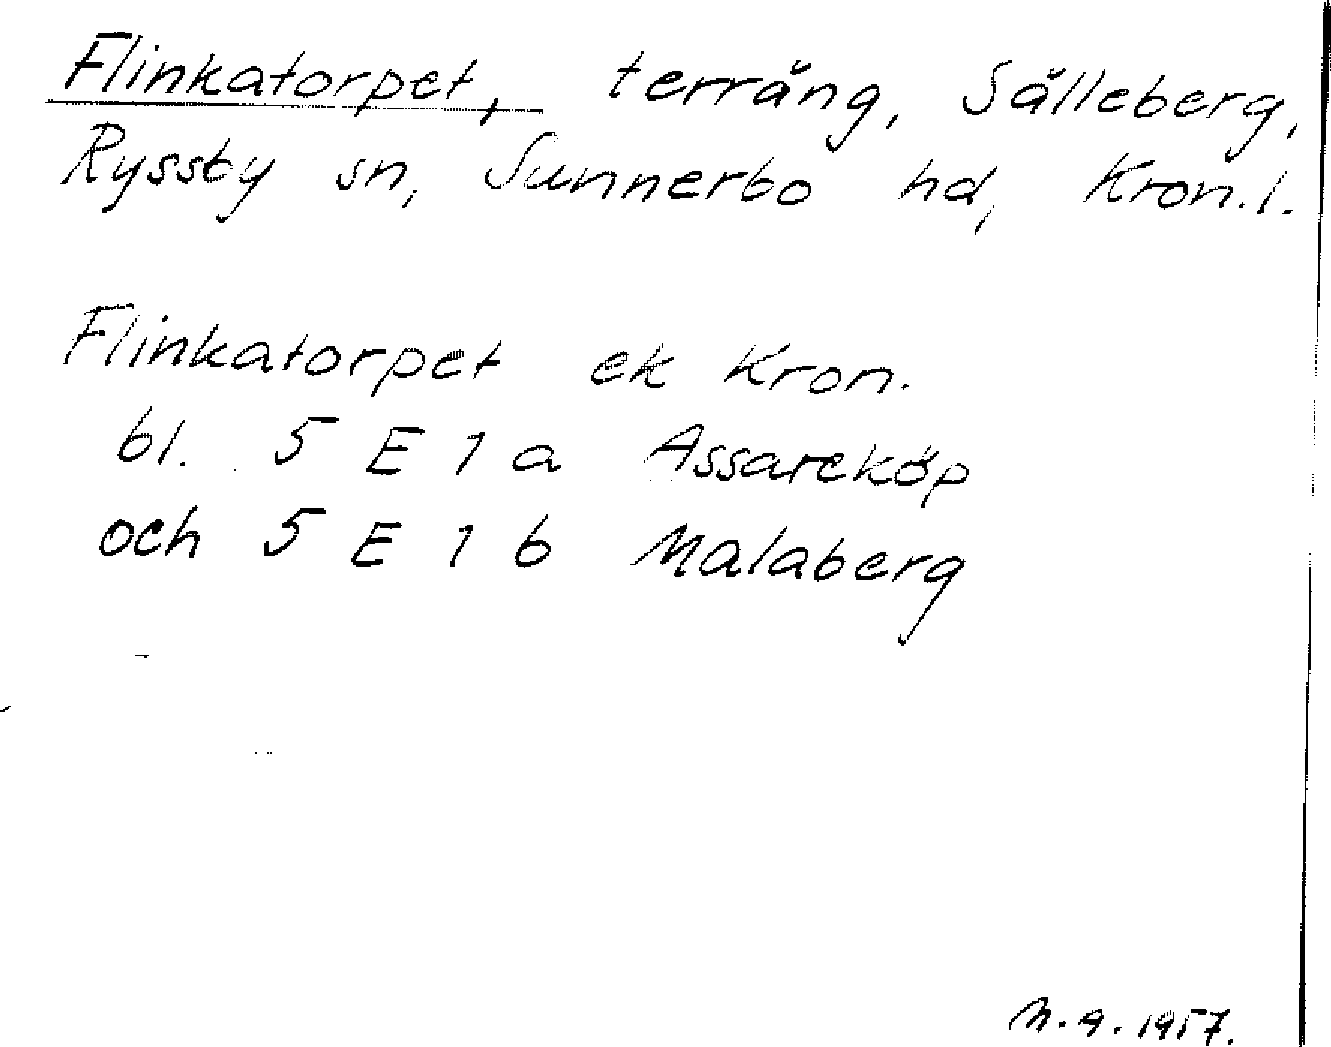 Flinkatorpet, terräng, Sälleberg,
Ryssby sn, Sunnerbo hd, Kron. l.
Flinkatorpet ek Kron.
bl. 5 E 1 a Assareköp
och 5 E 1 b Malaberg
M. A. 1957.